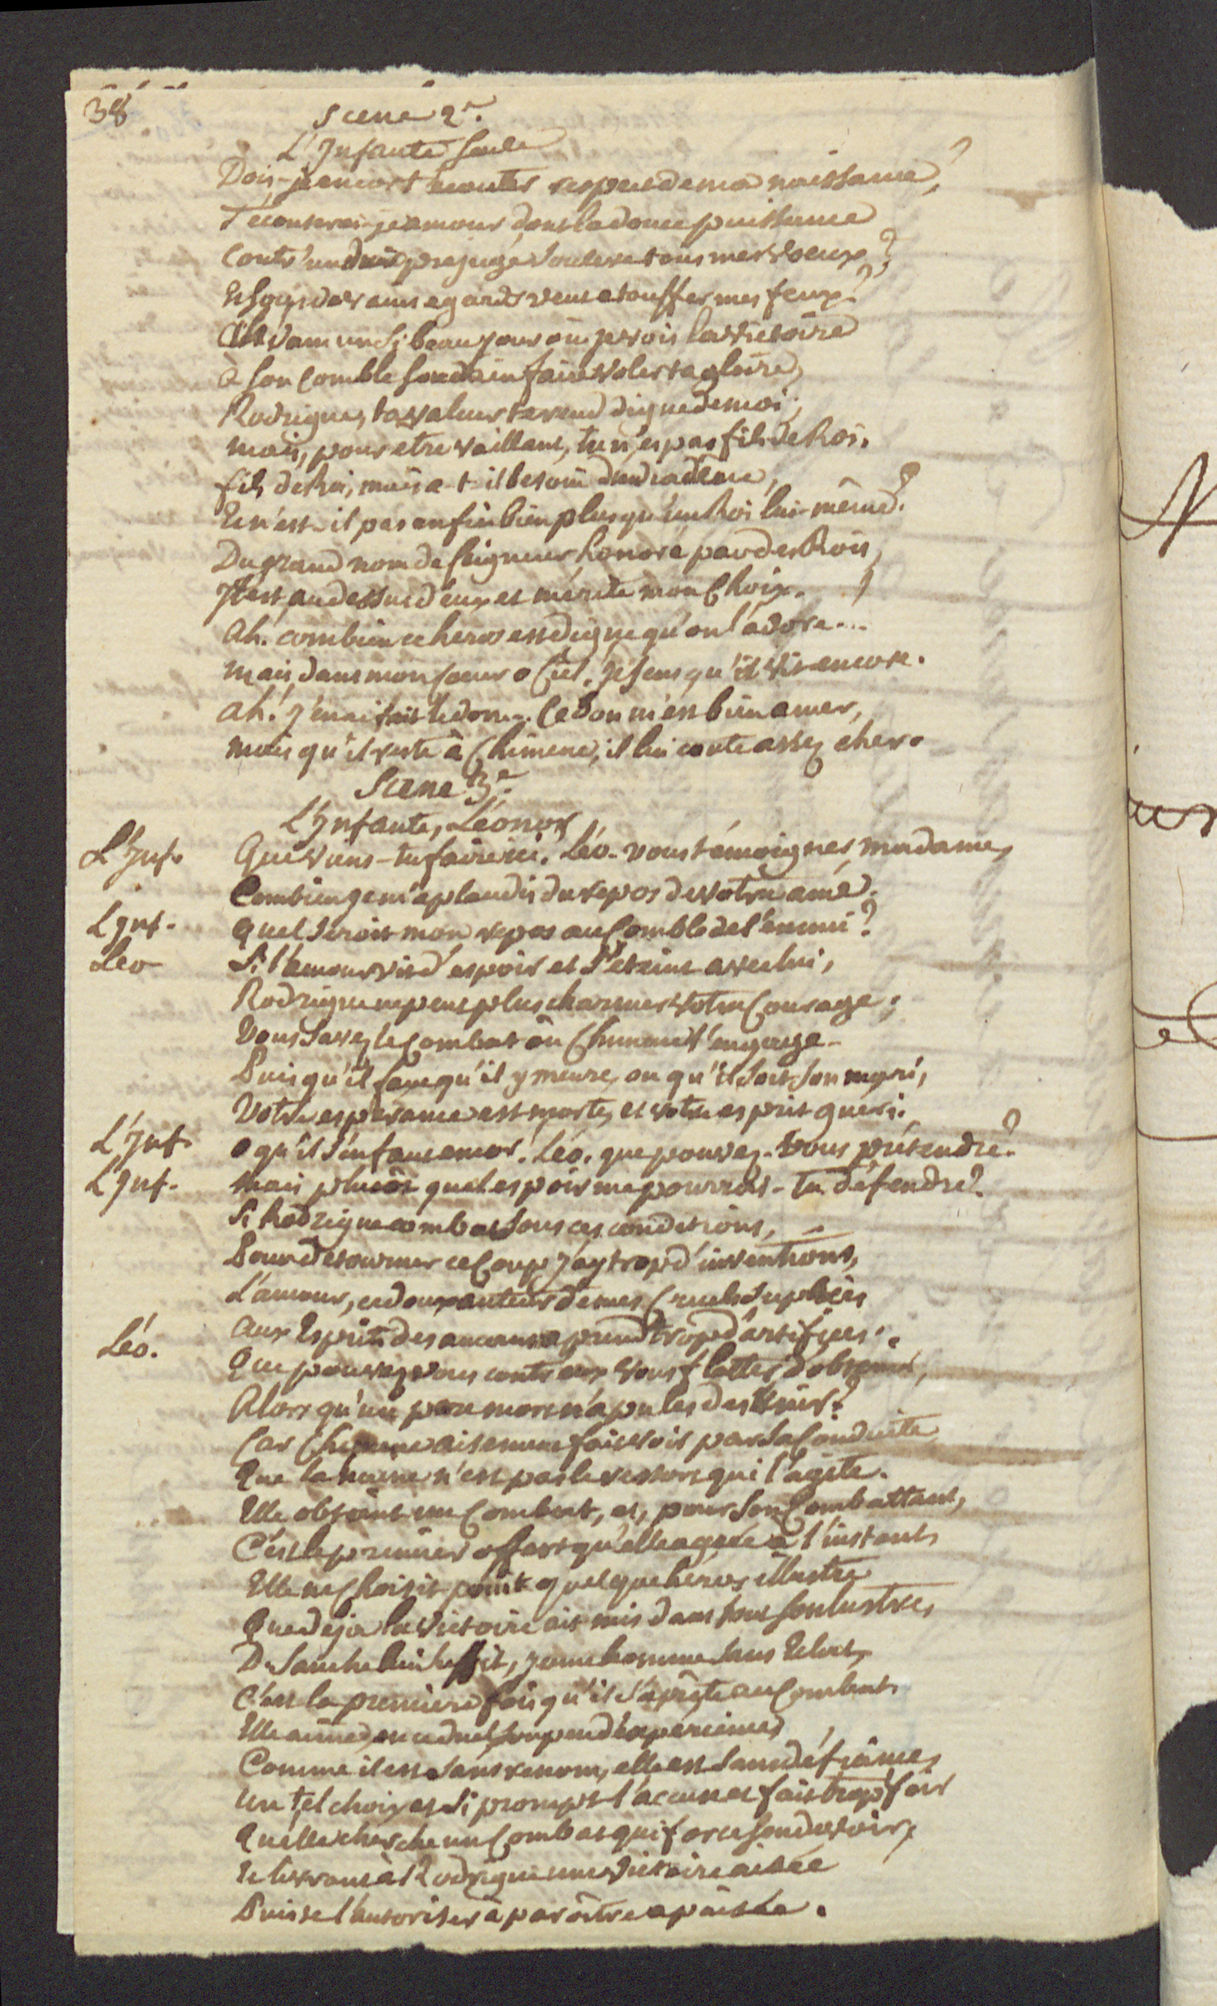 38
Scene 2e.
L'Infante seule
Dois-je encor t'écouter respect de ma naissance,?
T'écouterai-je amour dont la douce puissance
Contr' un dur préjugé souleve tous mes voeux?
Et sous vains egards veut etouffer mes feux?
dans un si beau jour où je vois la victoire
à son comble soudain faire voler ta gloire,
Rodrigue, ta valeur te rend digne de moi;
mais, pour etre vaillant, tu n'es pas fils de Roi.
fils de Roi, mais a-t-il besoin d'un diadème,
Et n'est-il pas enfin bien plus qu'un Roi lui-même?
Du grand nom de seigneur honoré par des Rois,
Il est au dessus d'eux et mérite mon choix.
Ah! combien ce heros est digne qu'on l'adore...
mais dans mon coeur o Ciel, je sens qu'il vit encore.
ah! j'en ai fait le don... Ce don m'est bien amer,
mais qu'il reste à Chimene, il lui coute assez cher.
Scene 3e.
L'Infante, Léonor
L'Inf. Que viens-tu faire ici. Léo. vous témoigner, madame,
Combien je m'aplaudis du repos de votre ame.
L'Inf. Quel seroit mon repos au comble de l'ennui?
Leo Si l'amour vit d'espoir et s'eteint avec lui,
Rodrigue ne peut plus charmer votre courage;
Vous savez le combat où Chimene l'engage.
Puis qu'il faut qu'il y meure, ou qu'il soit son mari,
Votre esperance est morte, et votre esprit gueri.
L'Inf. o qu'il s'en faut encor! Léo. que pouvez-vous prétendre?
L'Inf. Mais plutôt quel espoir me pourrois-tu défendre?
Si Rodrigue combat sous ces conditions,
Pour detourner ce coup j'ay trop d'inventions,
L'amour, ce doux auteur de mes cruels suplices
Aux Esprits des amans aprend trop d'artifices.
Léo. Que pouvez vous contr'eux vous flatter d'obtenir,
Alors qu'un pere mort n'a pu les desunir?
Car Chimene aisement fait voir par sa conduite
Que la haine n'est pas le ressort qui l'agite.
Elle obtient un combat, et, pour son combattant,
C'est le premier offert qu'elle agrée à l'instant
Elle ne choisit point quelque héros illustre
Que deja la victoire ait mis dans tout son lustre,
D. Sanche lui suffit, jeune homme sans Eclat,
C'est la premiere fois qu'il s'aprête au combat
Elle aime, en ce duel, son peu d'experience,
Comme il est sans renom, elle est sans défiance,
Un tel choix et si prompt l'accuse et fait trop voir
Qu'elle cherche un combat qui force son devoir,
Et livrant à Rodrigue une victoire aisée
Puisse l'autoriser à paroître apaisée.